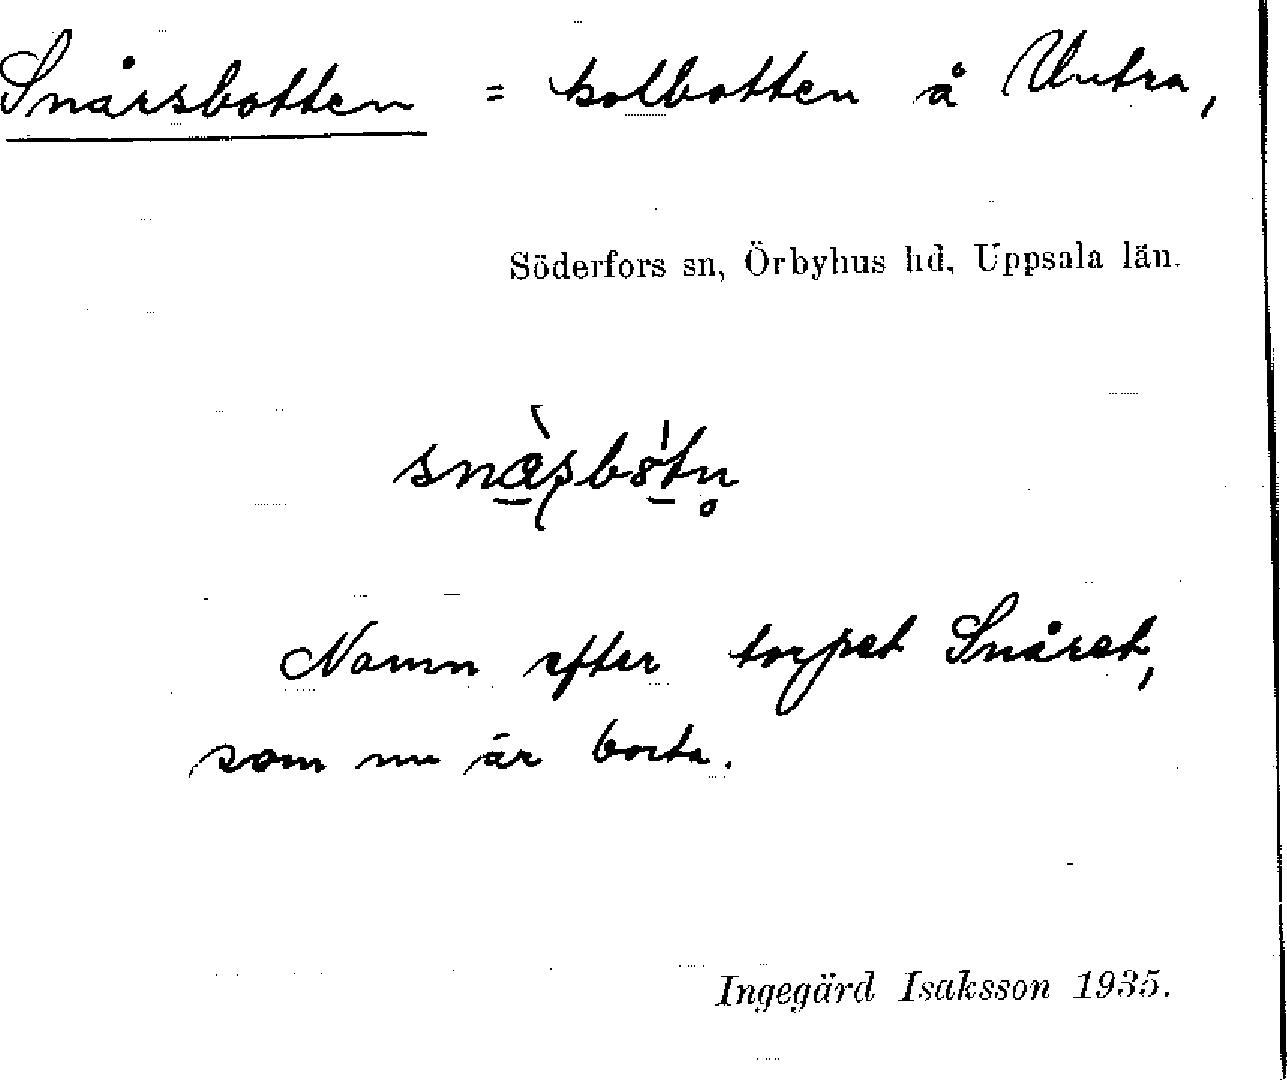 Snårsbotten = kolbotten å Untra,
Söderfors sn, Örbyhus hd, Uppsala län.
Namn efter torpet Snåret,
som nu är borta.
Ingegärd Isaksson 1935.